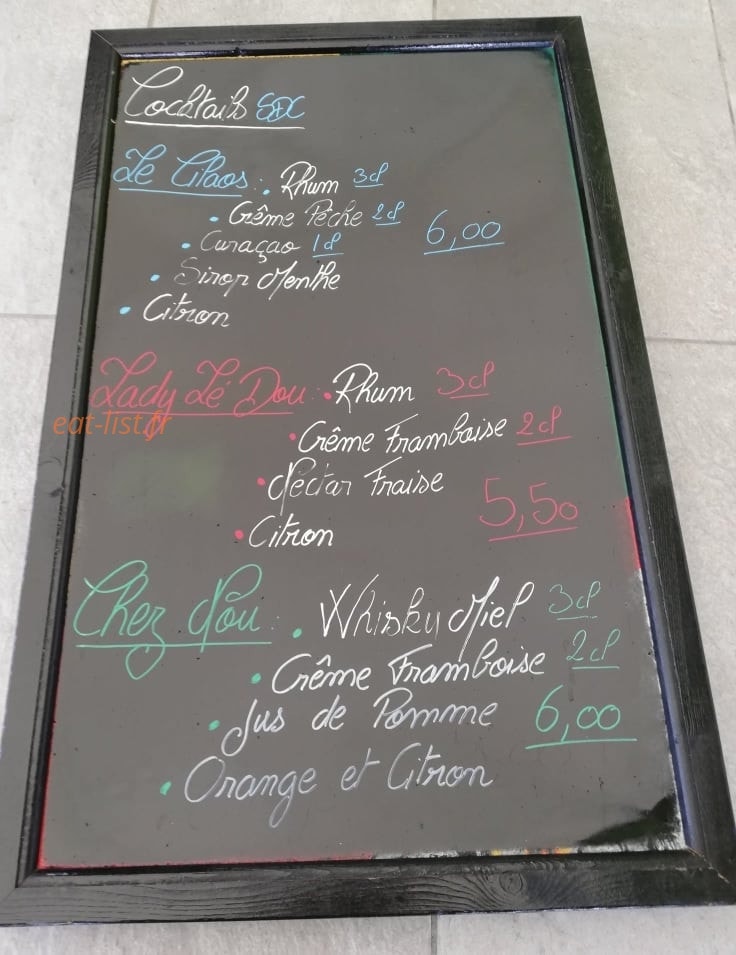 Cocktails SDC
Le Cilaos : • Rhum 3cl
• Crême Pêche 2cl
• Curaçao 1cl 6,00
• Sirop Menthe
• Citron
Lady Lé Dou : • Rhum 3cl
eat-list.fr
• Crême Framboise 2cl
• Nectar Fraise
5,50
• Citron
Chez Nou : • Whisky Miel 3cl
• Crême Framboise 2cl
• Jus de Pomme 6,00
• Orange et Citron